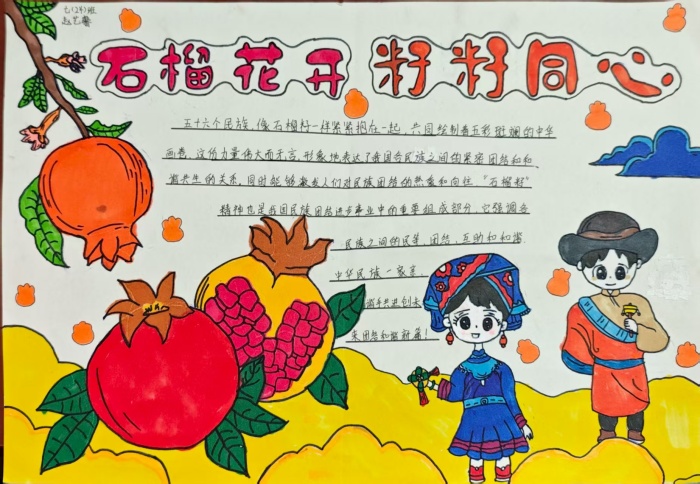 七(24)班
赵艺馨
石榴花开 籽籽同心
五十六个民族，像石榴籽一样紧紧抱在一起，共同绘制着五彩斑斓的中华
画卷，这份力量伟大而无言，形象地表达了我国各民族之间的紧密团结和和
谐共生的关系，同时能够激发人们对民族团结的热爱和向往“石榴籽”
精神也是我国民族团结进步事业中的重要组成部分，它强调各
民族之间的民等、团结、互助和和谐.
中华民族一家亲，
携手共进创未
来团结和谐新篇！